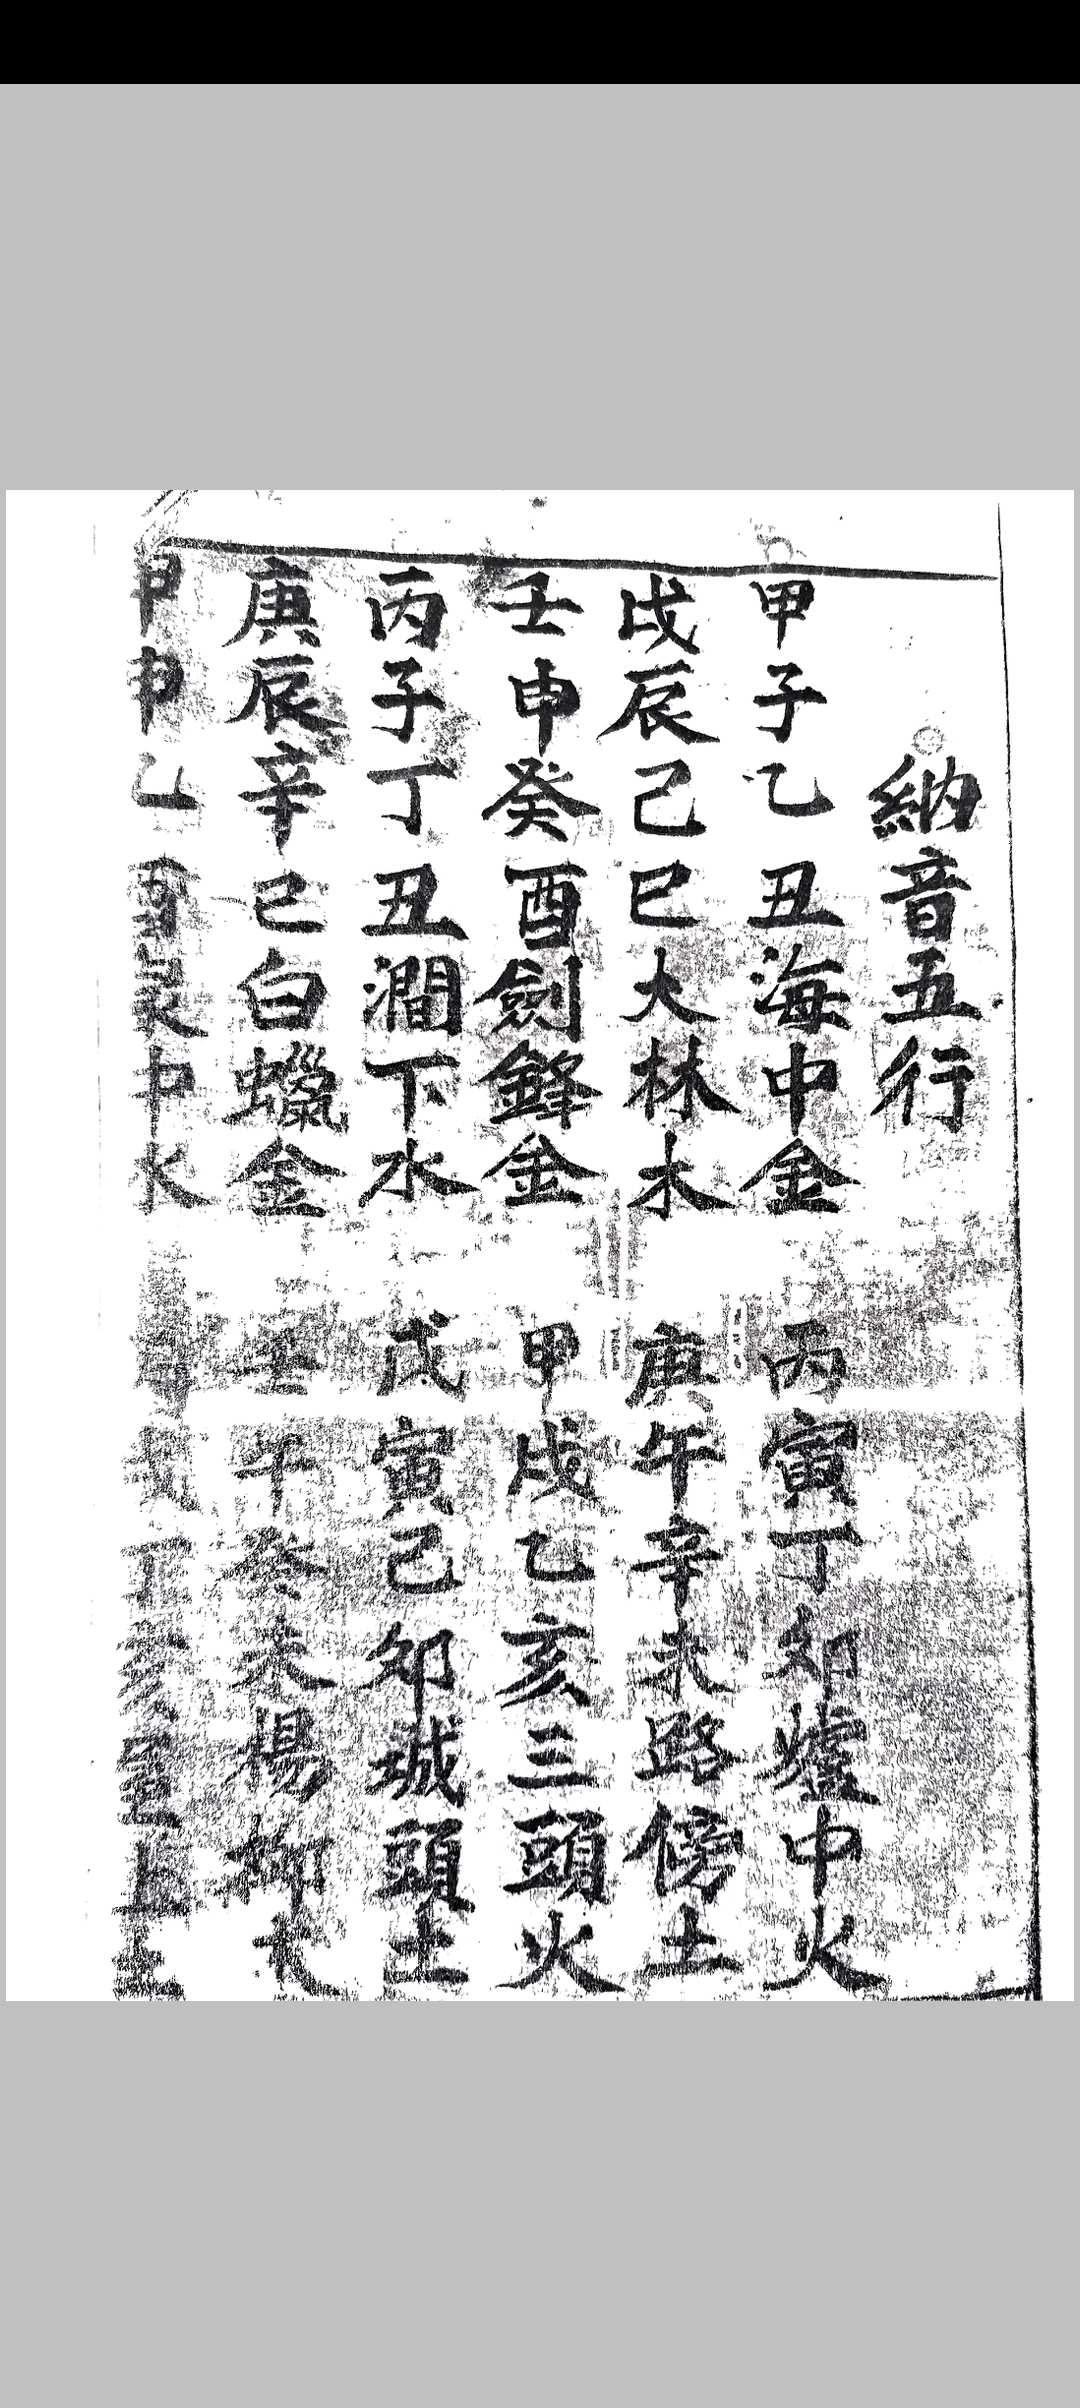 納音五行
甲子乙丑海中金 丙寅丁卯爐中火
戊辰己巳大林木 庚午辛未路傍土
壬申癸酉劍鋒金 甲戌乙亥三頭火
丙子丁丑澗下水 戊寅己卯城頭土
庚辰辛巳白蠟金 壬午癸未楊柳木
甲申乙酉泉中水 丁亥屋上土